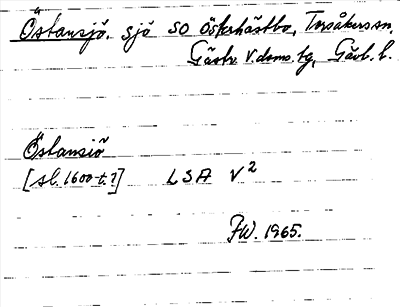 Östansjö. sjö SO Österhästbo, Torsåkers sn.
Gästr. V. doms. tg, Gävl. l.
Östansiö
[sl. 1600-t.?] LSA V²
FW. 1965.